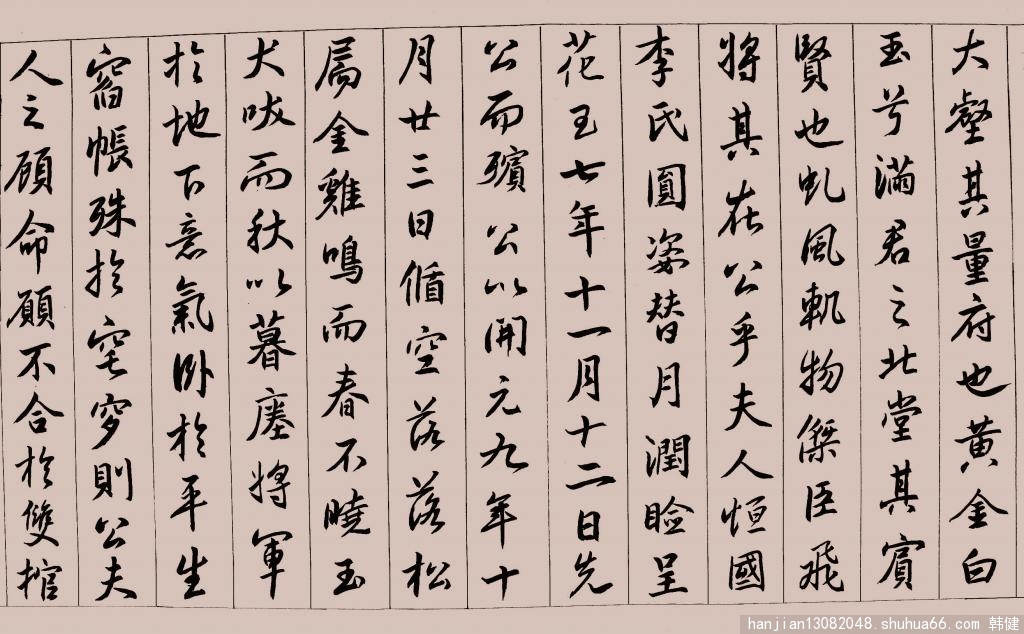 大壑其量府也黃金白
玉兮滿君之北堂其賓
賢也虬風軌物傑臣飛
將其在公乎夫人恒國
李氏圓姿替月潤臉呈
花王七年十一月十二日先
公而殯公以開元九年十
月廿三日循空落落松
扃金雞鳴而春不曉玉
犬吠而秋以暮塵將軍
於地下意氣臥於平生
帳殊於窀穸則公夫
人之顧命願不合於雙棺
hanjian13082048.shuhua66.com 韩健